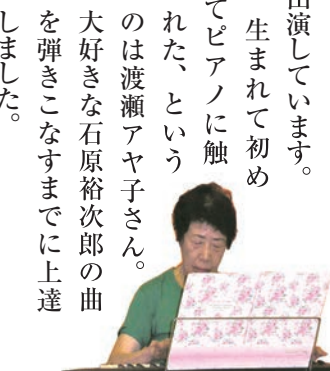 出演しています。
生まれて初め
てピアノに触
れた、という
のは渡瀬アヤ子さん。
大好きな石原裕次郎の曲
を弾きこなすまでに上達
しました。